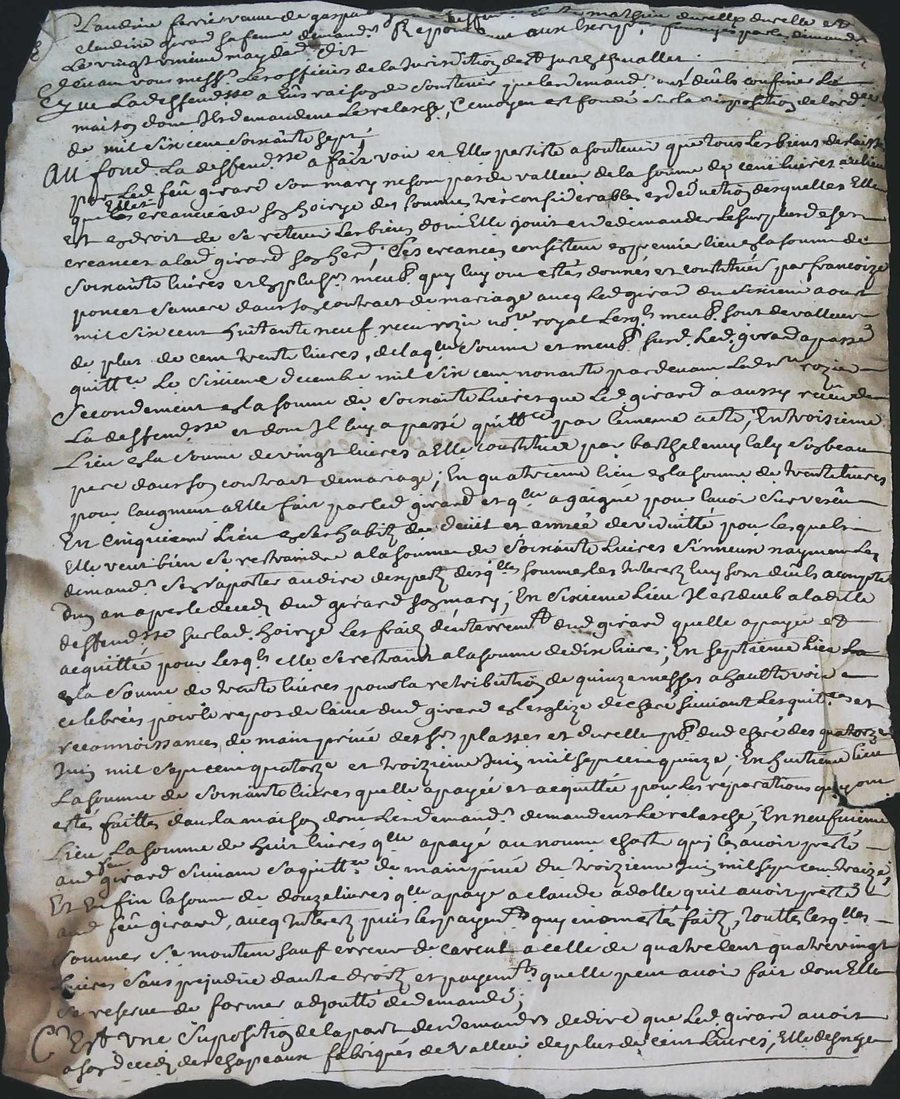 Claudine ferrie veuve de gaspard deffend Mathieu duvelle duvelle et
claudine girard sa femme demandrs Repond aux Escrip fournies par les demandrs
Le vingt uniesme may dernier dit
devant vous messrs Les officiers de la Jurisdiction de St chevallier
Que La deffendsse a Eu raison de soutenir que les demandrs ont deub configner la
maison dont Ils demandent Le relasche, Ce moyen est fondé sur la disposition de lordce
de mil six cent soixante sept;
Au fond La deffendsse a fait voir et Elle persiste a soutenir que tous Les biens delaissés
par Led feu girard son mary ne sont pas de valleur de la somme de cent livres au lieu
que Elle est creanciere de son hoirye des sommes tres considerables en deduction desquelles Elle
est en droit de se retenir Les biens dont Elle jouit et de demander Le surplus de ses
creances a lad girard son herre, Ces creances consistent en premier lieu en la somme de
soixante livres et en plusrs meub. quy luy ont estés donnés et constitués par francoize
poncet sa mere dans son contract de mariage avec Led girard du sixiemé aoust
mil six cent huitante neuf receu rozier nore royal Lesqls meub. sont de valleur
de plus de cent trente livres, de laqlle somme et meub. susd. Led. girard a passé
quittce Le sixieme decembre mil six cent nonante pardevant Led nre rozier
Secondement en la somme de soixante Livres que Led girard a aussy receu de
La deffendsse et dont Il luy a passé quittce par le mesme acte, En troisieme
Lieu en la somme de vingt livres a elle constituée par barthelemy laly son beau
pere dans son contract de mariage; En quatrieme lieu en la somme de trente livres
pour laugment a elle fait par led girard et qlle a gaigné pour lavoir survescu
En cinquieme Lieu en ses habits de deuil et année de viduitté pour Lesquels
Elle veut bien se restraindre a la somme de soixante Livres si mieux n'ayment les
demandrs s'en raporter au dire d'exparts desqlles sommes les Interets luy sont deubs a compter
d'un an apres le deceds dud girard son mary; En sixieme Lieu Il est deub a ladite
deffendsse sur lad. hoirye Les fraix d'enterremt dud girard quelle a payée et
acquittée pour Lesqls elle se restraint a la somme de dix livres; En septieme Lieu
en la somme de trente livres pour la retribution de quinze messes a haulte voix
celebrées pour le repos de lame dud girard en lesglize de chare suivant Les quitces et
reconnoissances de main privée des srs plasses et duvelle ptre dud chare des quatorze
Juin mil sept cent quatorze et troizieme Juin mil sept cent quinze; En huitieme lieu
La somme de soixante livres quelle a payée et acquittée pour Les reparations quy ont
estés faittes dans la maison dont Les demandrs demandent Le relasche; En neufvieme
Lieu La somme de huit livres qlle a payé au nommé chaste quy les avoit presté
aud feu girard suivant sa quittce de main privée du troizieme Juin mil sept cent treize;
Et En fin la somme de douze livres qlle a payé a claude adolle quil avoit presté
aud feu girard, avec Interets puis les payemts quy en ont estés faits, touttes lesqlles
sommes se montent sauf erreur de carcul a celle de quatre cent quatre vingt
livres sans prejudice d'autre droits et payemts quelle peut avoir fait dont Elle
se reserve de former adjoutté de demande;
C'Est Une suposition de la part des demandrs de dire que Led girard avoit
a son deceds des chapeaux fabriqués de valleur de plus de cent livres, Elle desnye